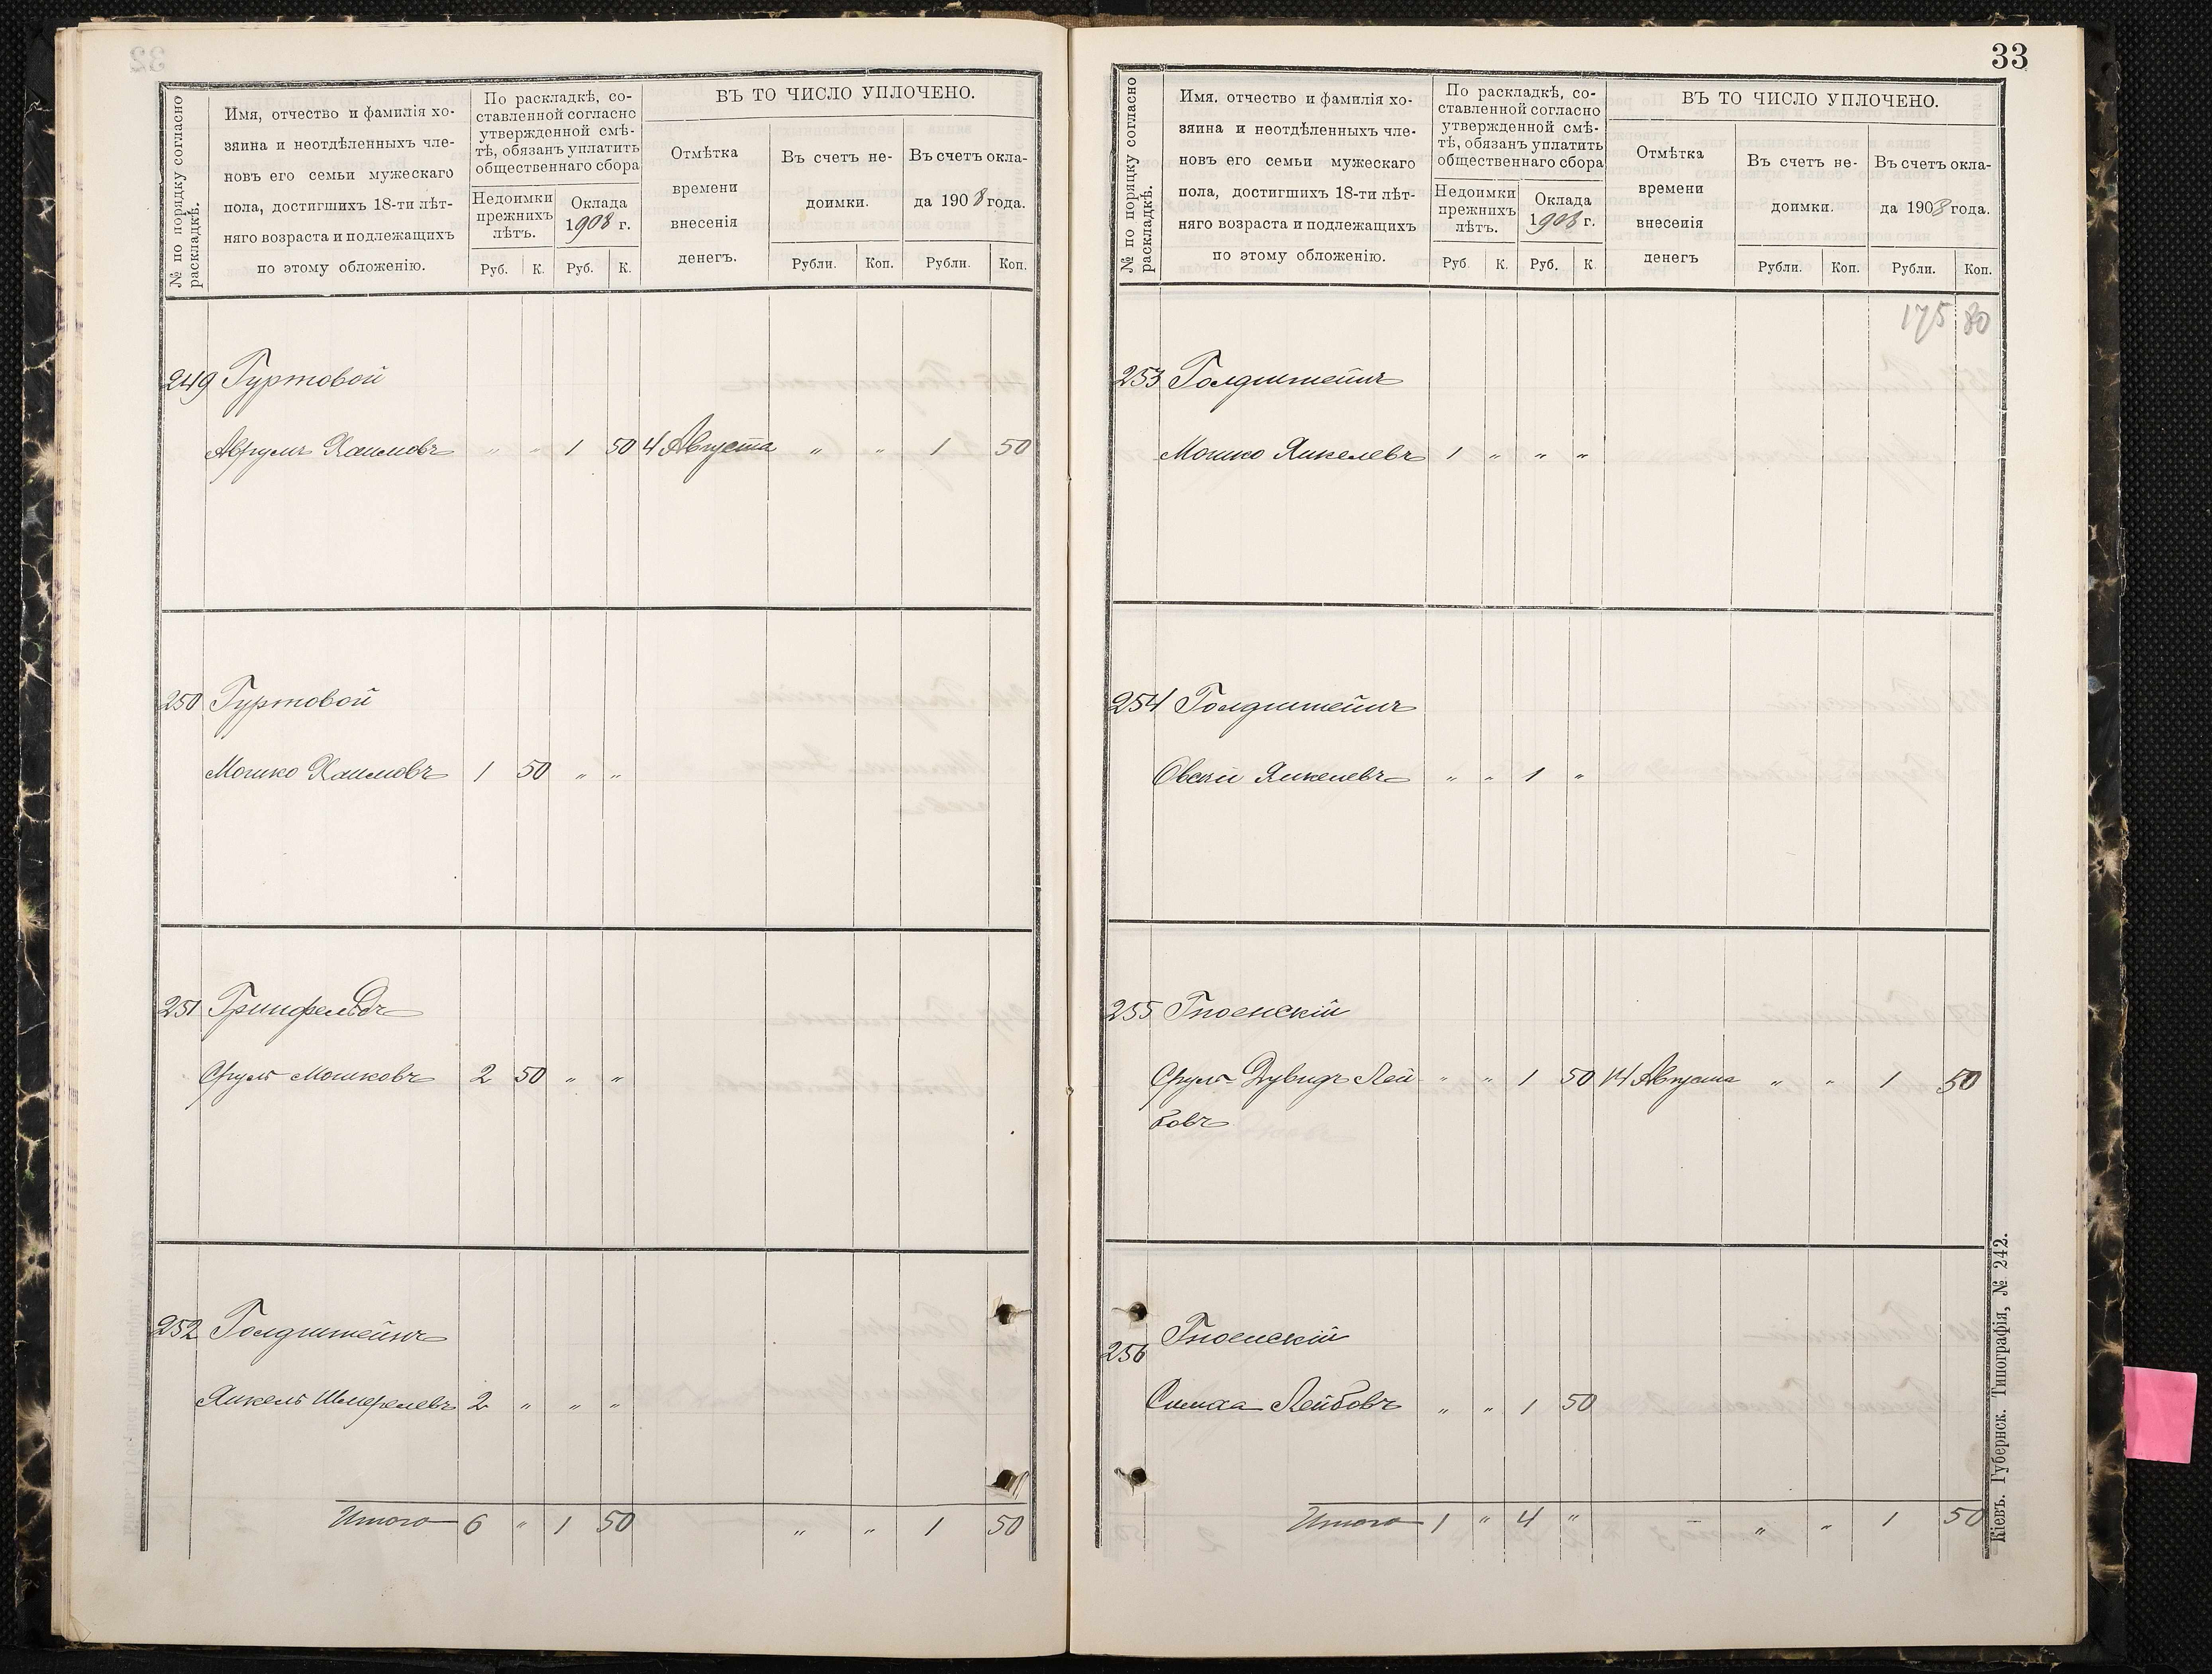 № по порядку согласно
раскладкѣ.
Имя, отчество и фамилія хо-
зяина и неотдѣленныхъ чле-
новъ его семьи мужескаго
пола, достигшихъ 18-ти лѣт-
няго возраста и подлежащихъ
по этому обложенію.
По раскладкѣ, со-
ставленной согласно
утвержденной смѣ-
тѣ, обязанъ уплатить
общественнаго сбора
Недоимки
прежнихъ
лѣтъ.
Оклада
1908 г.
Руб. К. Руб. К.
ВЪ ТО ЧИСЛО УПЛОЧЕНО.
Отмѣтка
времени
внесенія
денегъ.
Въ счетъ не-
доимки.
Въ счетъ окла-
да 1908 года.
Рубли. Коп. Рубли. Коп.
249 Гуртовой
Аврумъ Хаимовъ " " 1 50 4 Августа " " 1 50
250 Гуртовой
Мошко Хаимовъ 1 50 " "
251 Гринфельдъ
Сруль Мошковъ 2 50 " "
252 Голдштейнъ
Янкель Шмерелевъ 2 " " "
Итого 6 " 1 50 " " 1 50
33
№ по порядку согласно
раскладкѣ.
Имя, отчество и фамилія хо-
зяина и неотдѣленныхъ чле-
новъ его семьи мужескаго
пола, достигшихъ 18-ти лѣт-
няго возраста и подлежащихъ
по этому обложенію.
По раскладкѣ, со-
ставленной согласно
утвержденной смѣ-
тѣ, обязанъ уплатить
общественнаго сбора
Недоимки
прежнихъ
лѣтъ.
Оклада
1908 г.
Руб. К. Руб. К.
ВЪ ТО ЧИСЛО УПЛОЧЕНО.
Отмѣтка
времени
внесенія
денегъ
Въ счетъ не-
доимки.
Въ счетъ окла-
да 1908 года.
Рубли. Коп. Рубли. Коп.
175 80
253 Голдштейнъ
Мошко Янкелевъ 1 " " "
254 Голдштейнъ
Овсій Янкелевъ " " 1 "
255 Гноенскій
Сруль-Дувидъ Лей- " " 1 50 14 Августа " " 1 50
бовъ
256 Гноенскій
Симха Лейбовъ " " 1 50
Итого 1 " 4 " – " " 1 50
Кіевъ. Губернск. Типографія, № 242.